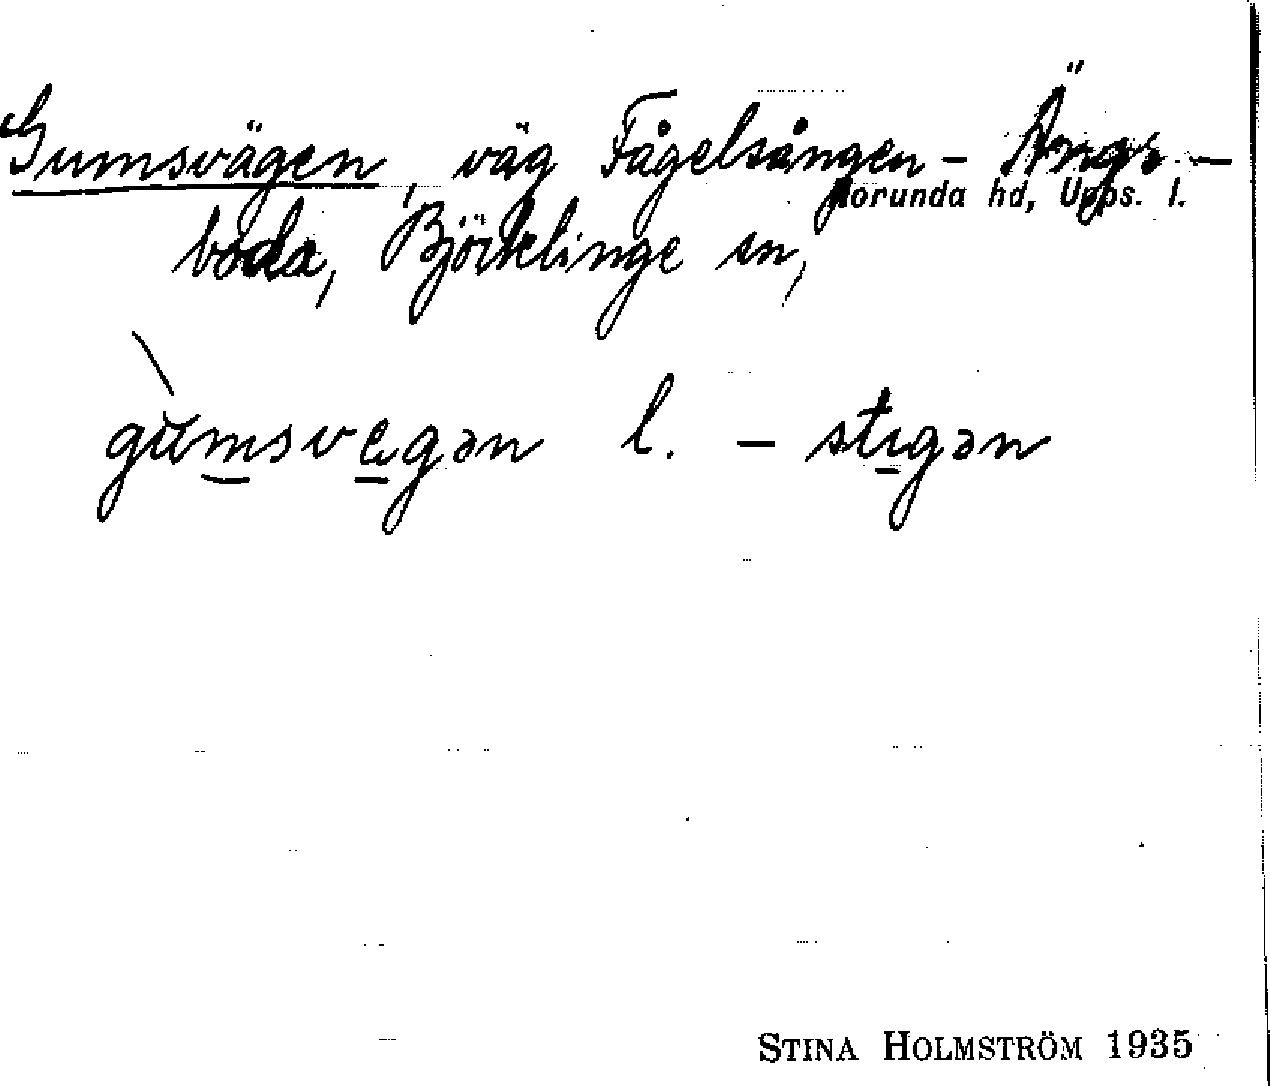 Gumsvägen, väg Fågelsången – Ängs –
Norunda hd, Upps. l.
boda, Björklinge sn,
gùmsvegən l. – stigən
STINA HOLMSTRÖM 1935